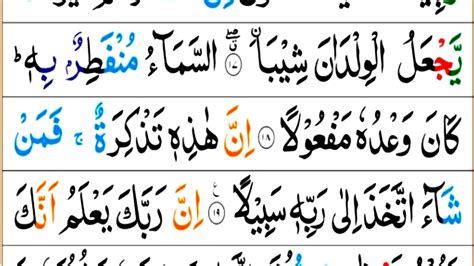 يَّجْعَلُ الْوِلْدَانَ شِيْبَاۨ ۝١٧ السَّمَآءُ مُنْفَطِرٌۢ بِهٖ ؕ
كَانَ وَعْدُهٗ مَفْعُوْلًا ۝١٨ اِنَّ هٰذِهٖ تَذْكِرَةٌ ۚ فَمَنْ
شَآءَ اتَّخَذَ اِلٰى رَبِّهٖ سَبِيْلًا ۝١٩ اِنَّ رَبَّكَ يَعْلَمُ اَنَّكَ